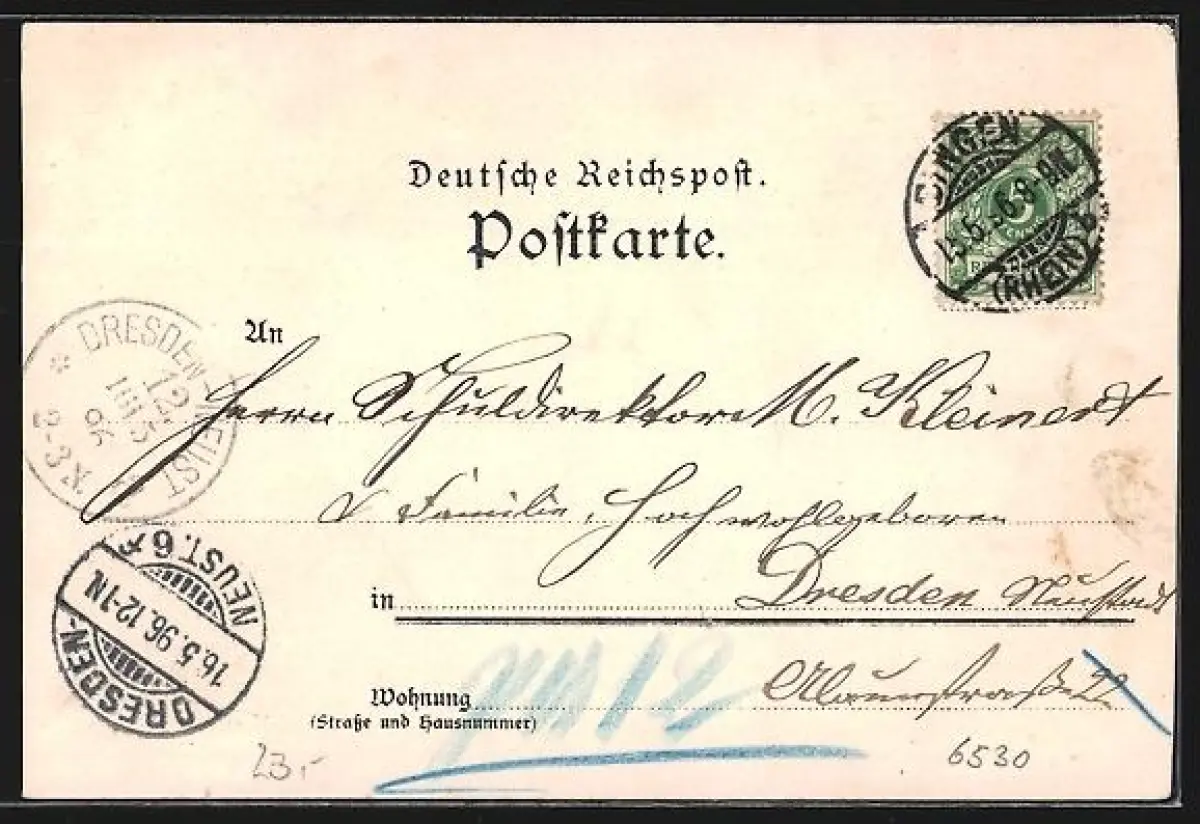 Deutsche Reichspost.
Postkarte.
BINGEN
15.5.96.8-9N.
(RHEIN) b
An
Herrn Schuldirektor M. Kleinert
& Familie, Hochwohlgeboren
in Dresden Neustadt
Wohnung
(Straße und Hausnummer)
Alaunstraße 22
DRESDEN-NEUST
12
5
96
2-3 N.
DRESDEN-NEUST. 6 *
16.5.96.12-1N.
12
23.-
6530